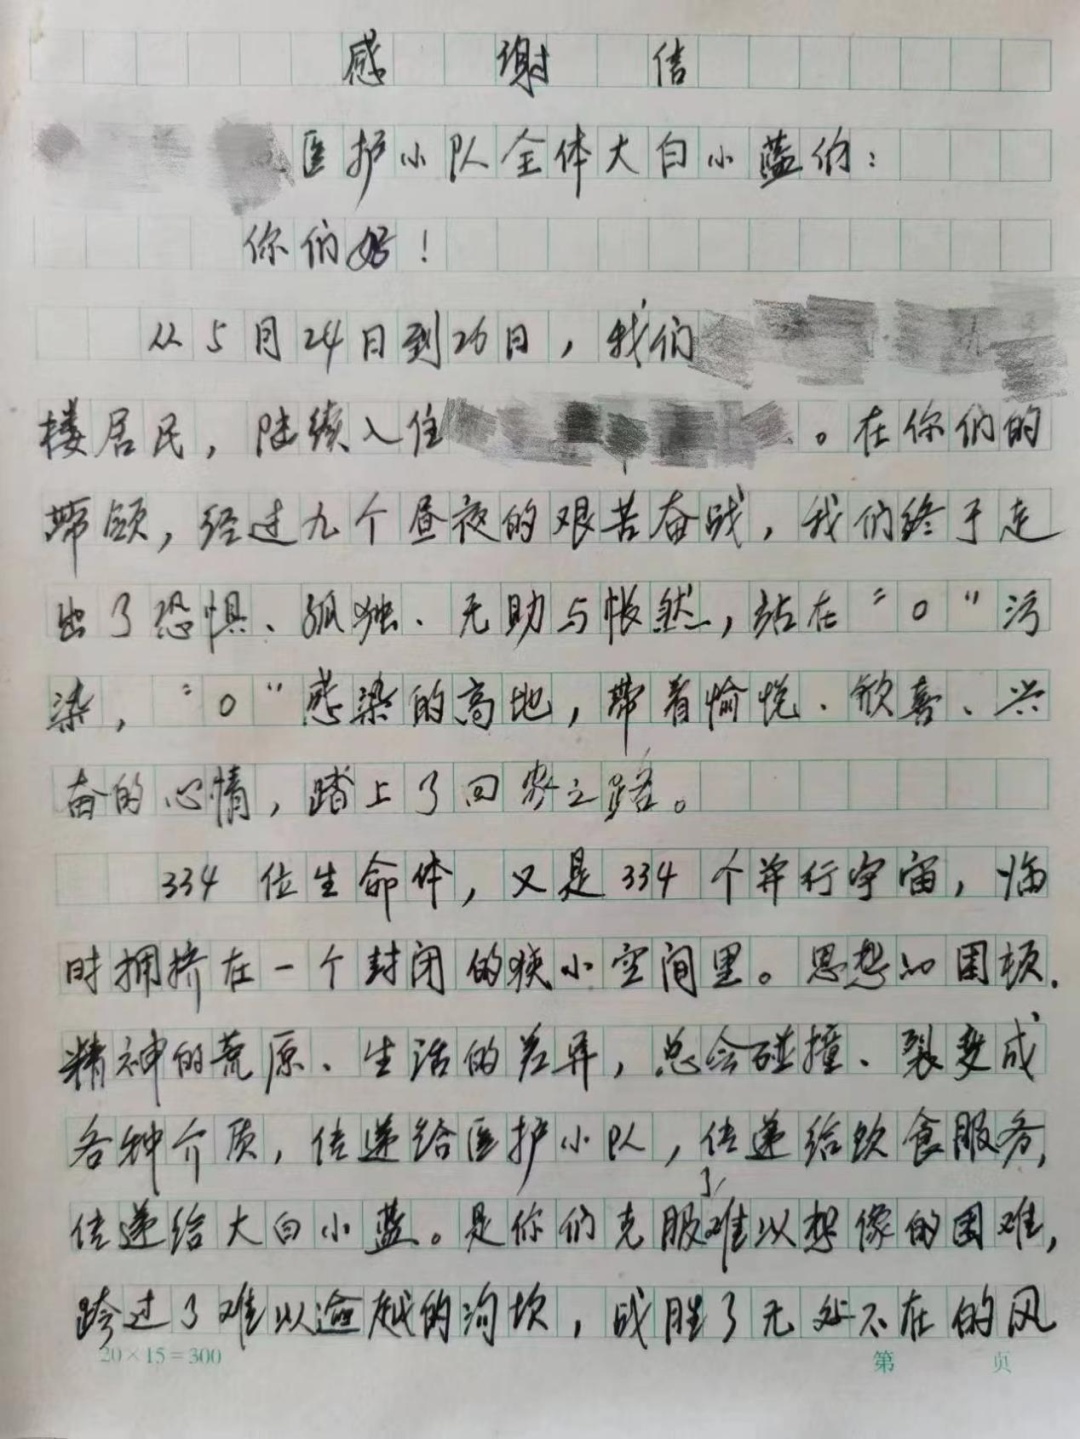 感谢信
医护小队全体大白小蓝们：
你们好！
从5月24日到26日，我们
楼居民，陆续入住。在你们的
带领，经过九个昼夜的艰苦奋战，我们终于走
出了恐惧、孤独、无助与怅然，站在“0”污
染，“0”感染的高地，带着愉悦、欣喜、兴
奋的心情，踏上了回家之路。
334位生命体，又是334个并行宇宙，临
时拥挤在一个封闭的狭小空间里。思想的困顿.
精神的荒原、生活的差异，总会碰撞、裂变成
各种介质，传递给医护小队，传递给饮食服务，
传递给大白小蓝。是你们克服了难以想像的困难，
跨过了难以逾越的沟坎，战胜了无处不在的风
20×15=300 第 页